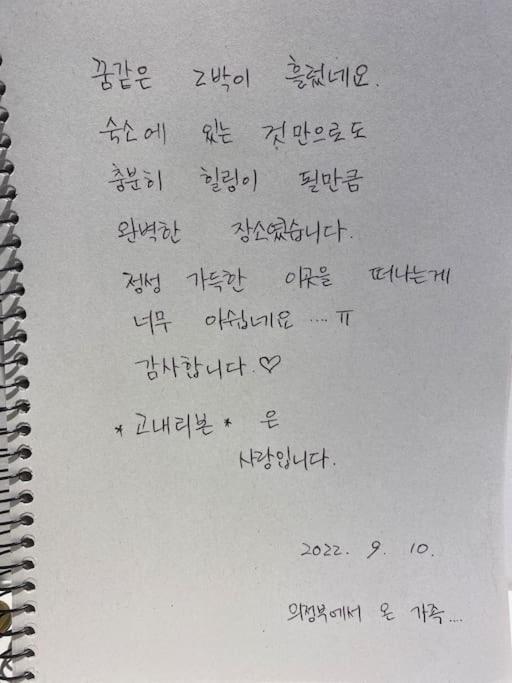 꿈같은 2박이 흘렀네요.
숙소에 있는 것만으로도
충분히 힐링이 될만큼
완벽한 장소였습니다.
정성 가득한 이곳을 떠나는게
너무 아쉽네요 .... ㅠ
감사합니다.♡
* 고내리본 * 은
사랑입니다.
2022. 9. 10.
의정부에서 온 가족....